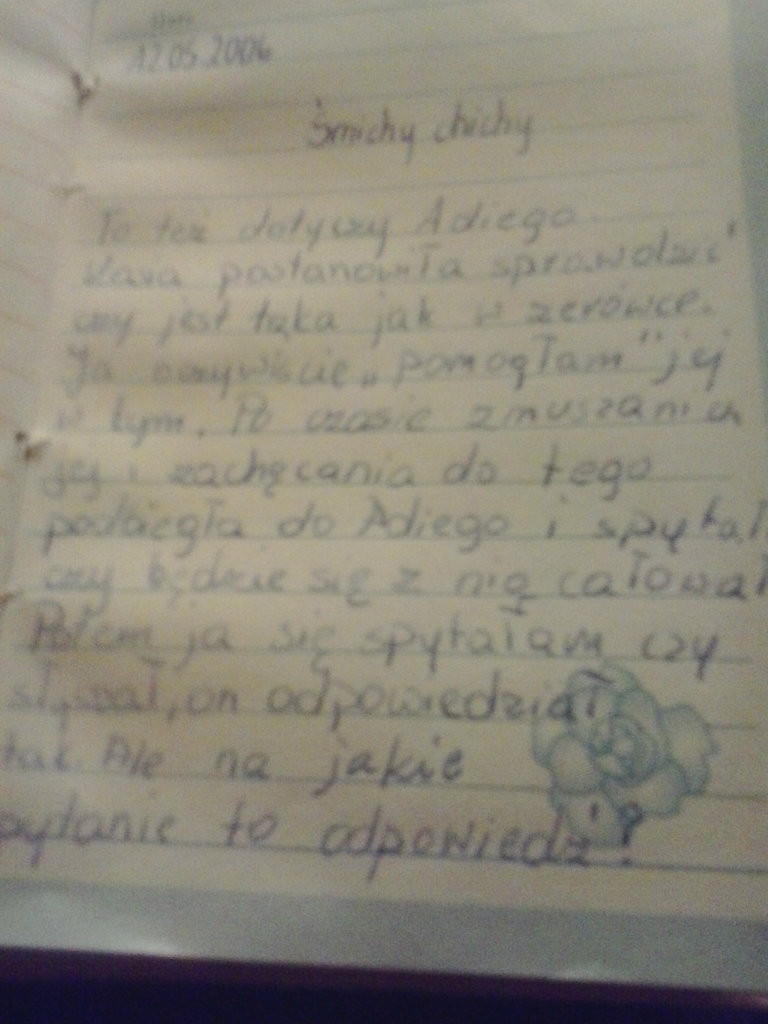 12.05.2006
Śmichy chichy
To też dotyczy Adiego
Kasia postanowiła sprawdzić
czy jest taka jak w zerówce.
Ja oczywiście „pomogłam" jej
w tym. Po czasie zmuszania
jej i zachęcania do tego
podbiegła do Adiego i spytał
czy będzie się z nią całował
Potem ja się spytałam czy
słyszał, on odpowiedział
tak. Ale na jakie
pytanie to odpowiedź?